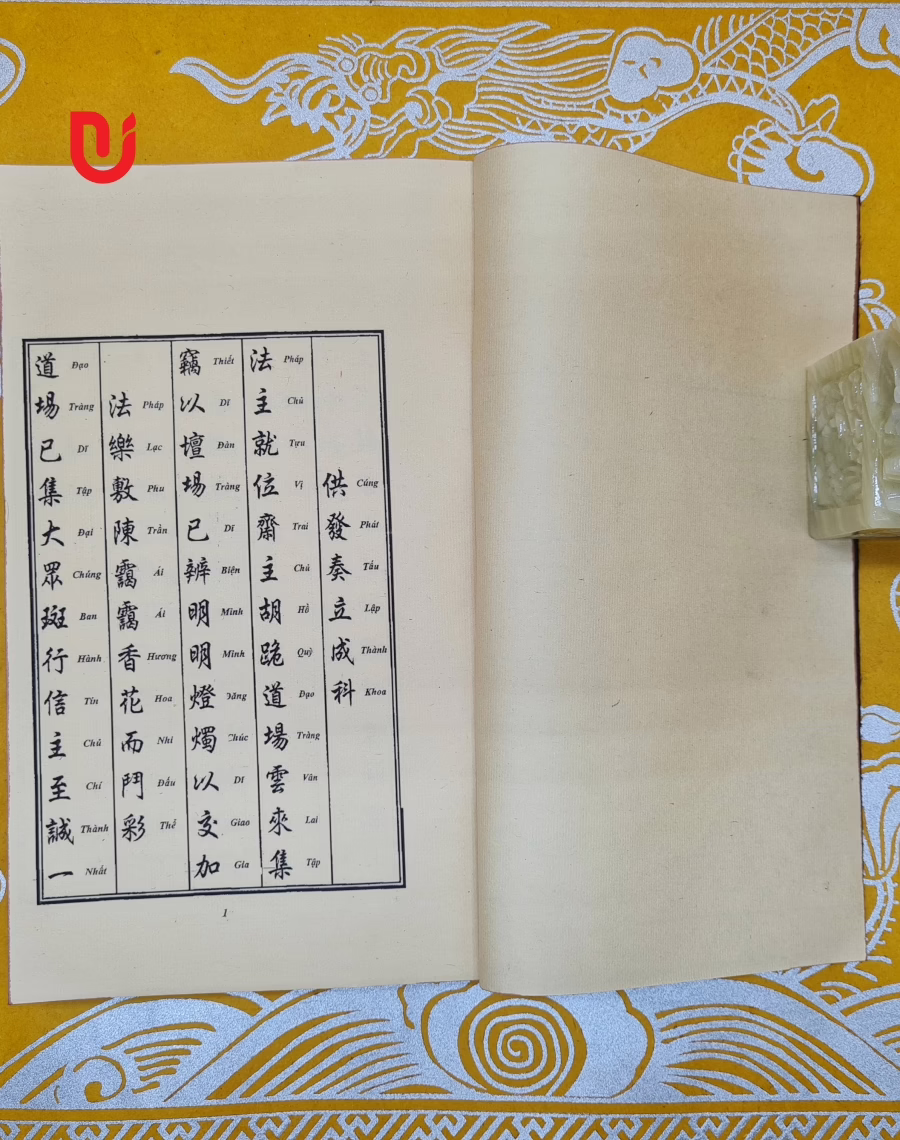 供發奏立成科
Cúng Phát Tấu Lập Thành Khoa
法主就位齋主胡跪道場雲來集
Pháp Chủ Tựu Vị Trai Chủ Hồ Quỳ Đạo Tràng Vân Lai Tập
竊以壇場已辨明明燈燭以交加
Thiết Dĩ Đàn Tràng Dĩ Biện Minh Minh Đăng Chúc Dĩ Giao Gia
法樂敷陳靄靄香花而鬥彩
Pháp Lạc Phu Trần Ái Ái Hương Hoa Nhi Đấu Thể
道場已集大眾斑行信主至誠一
Đạo Tràng Dĩ Tập Đại Chúng Ban Hành Tín Chủ Chí Thành Nhất
1